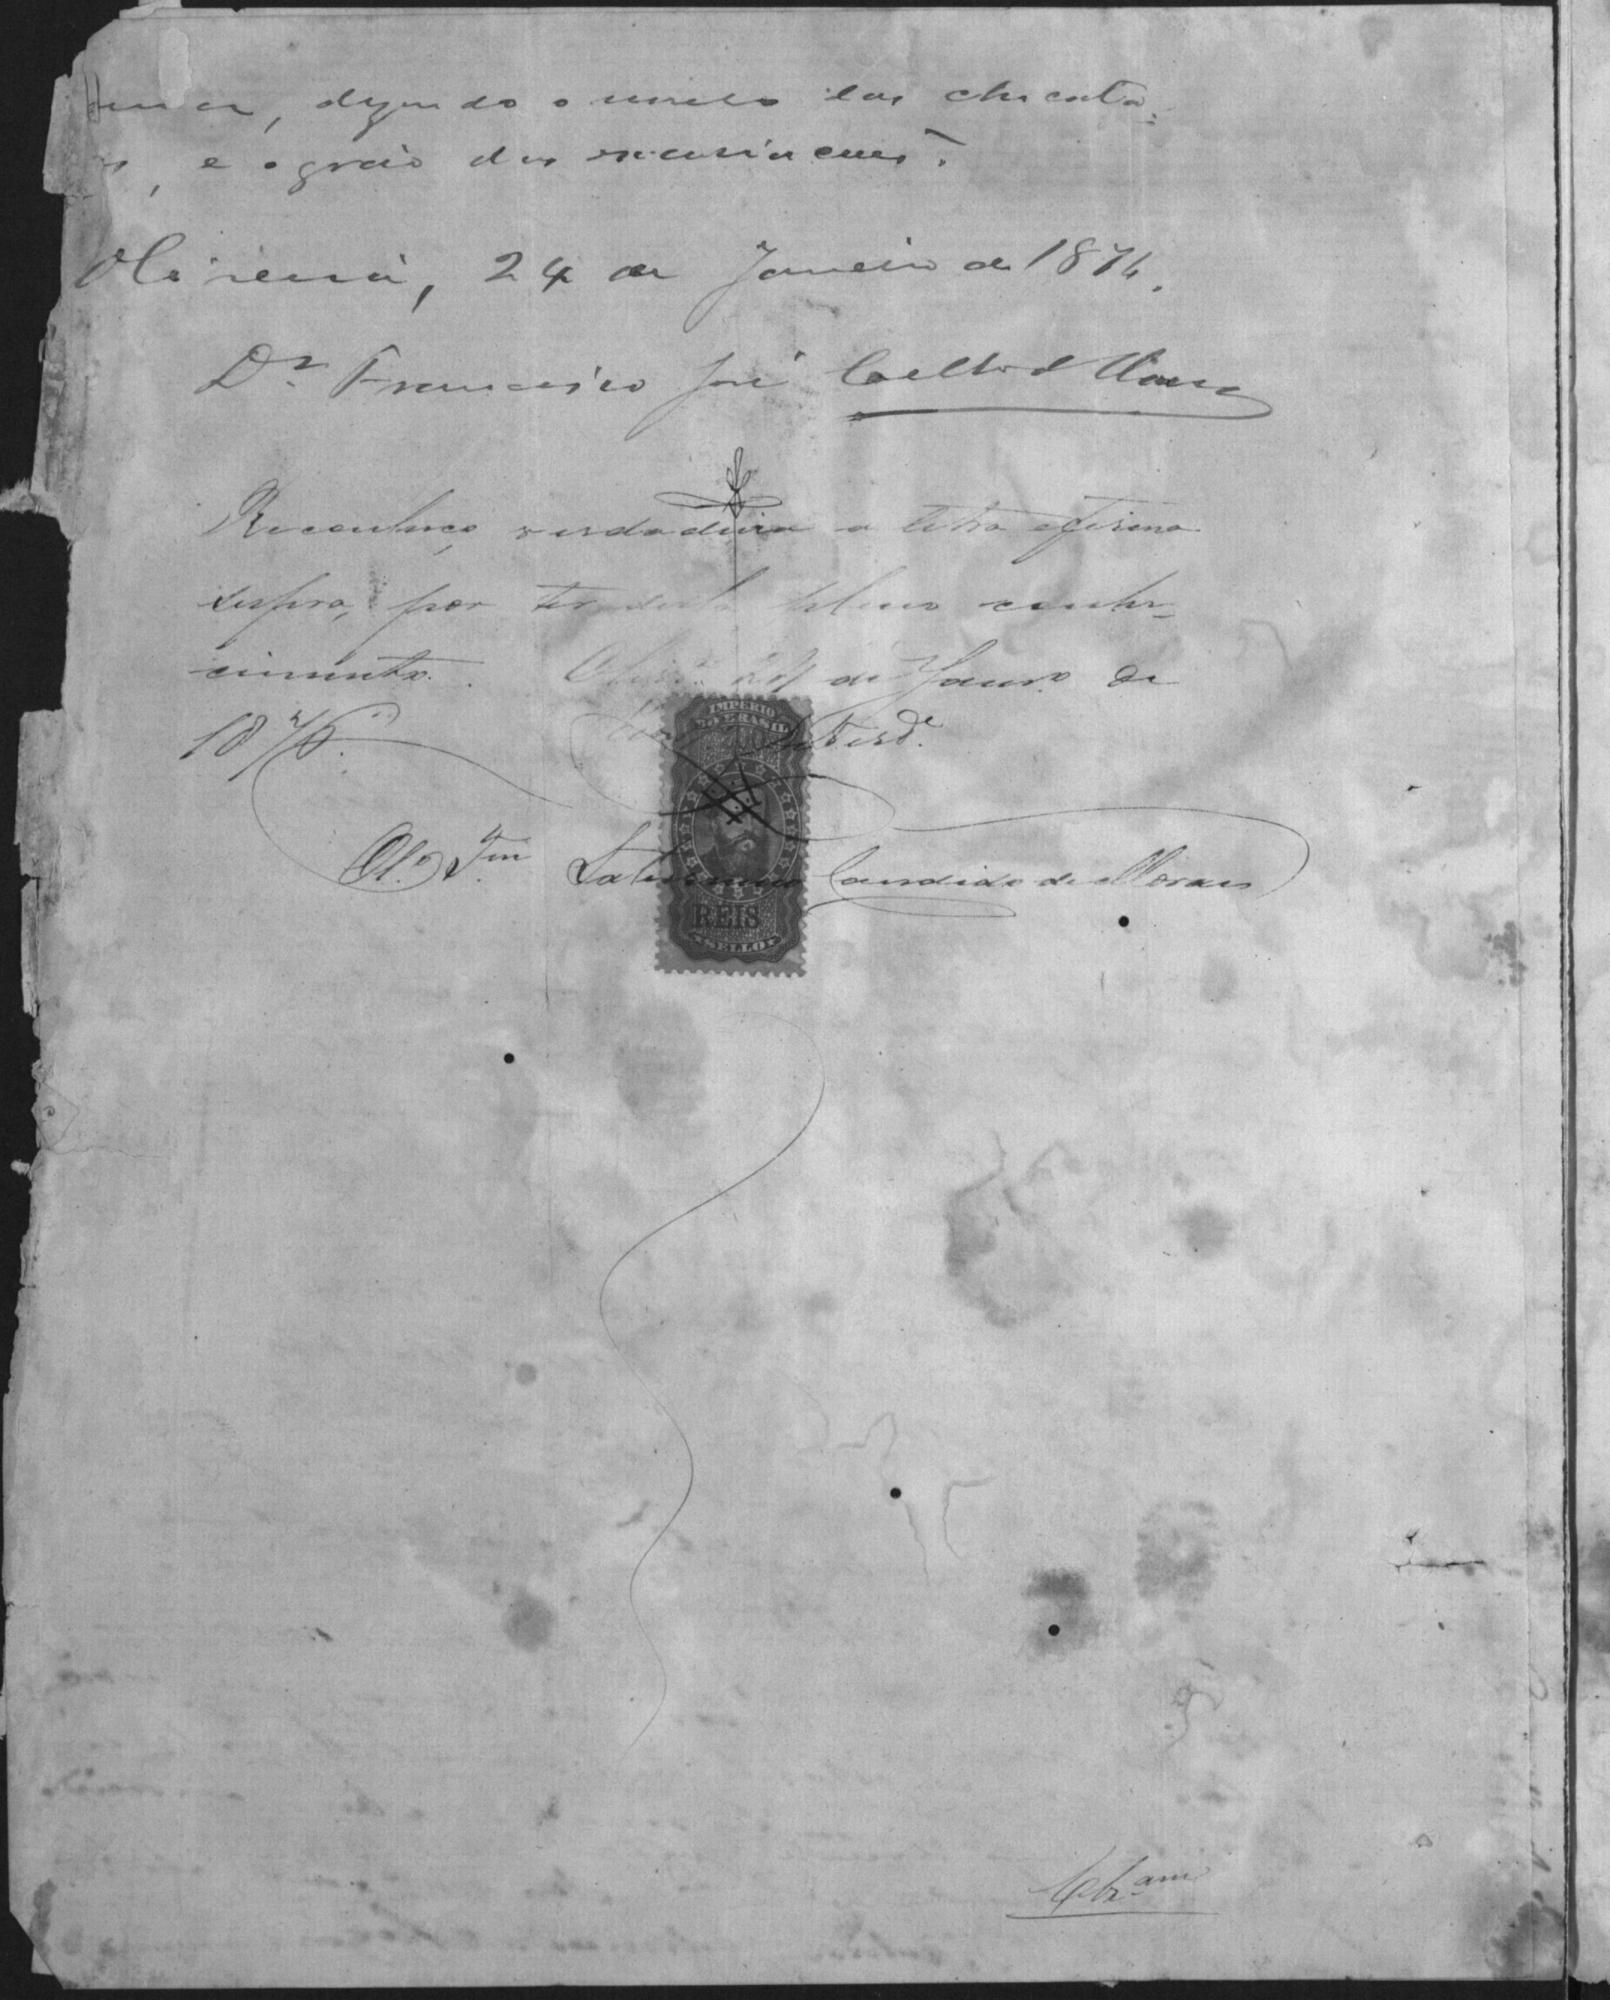 , dizendo o numero das chicota-
, e o grão das
Oliveira, 24 de Janeiro de 1876.
Dr. Francisco José Coelho de Moura
Reconheço verdadeira a letra e firma
supra, por ter della pleno conhe-
cimento. Olivra 24 de Janro de
1876.
Em Test de Verde
IMPERIO
DO BRASIL
REIS
SELLO
O Tam Candido de Moraes